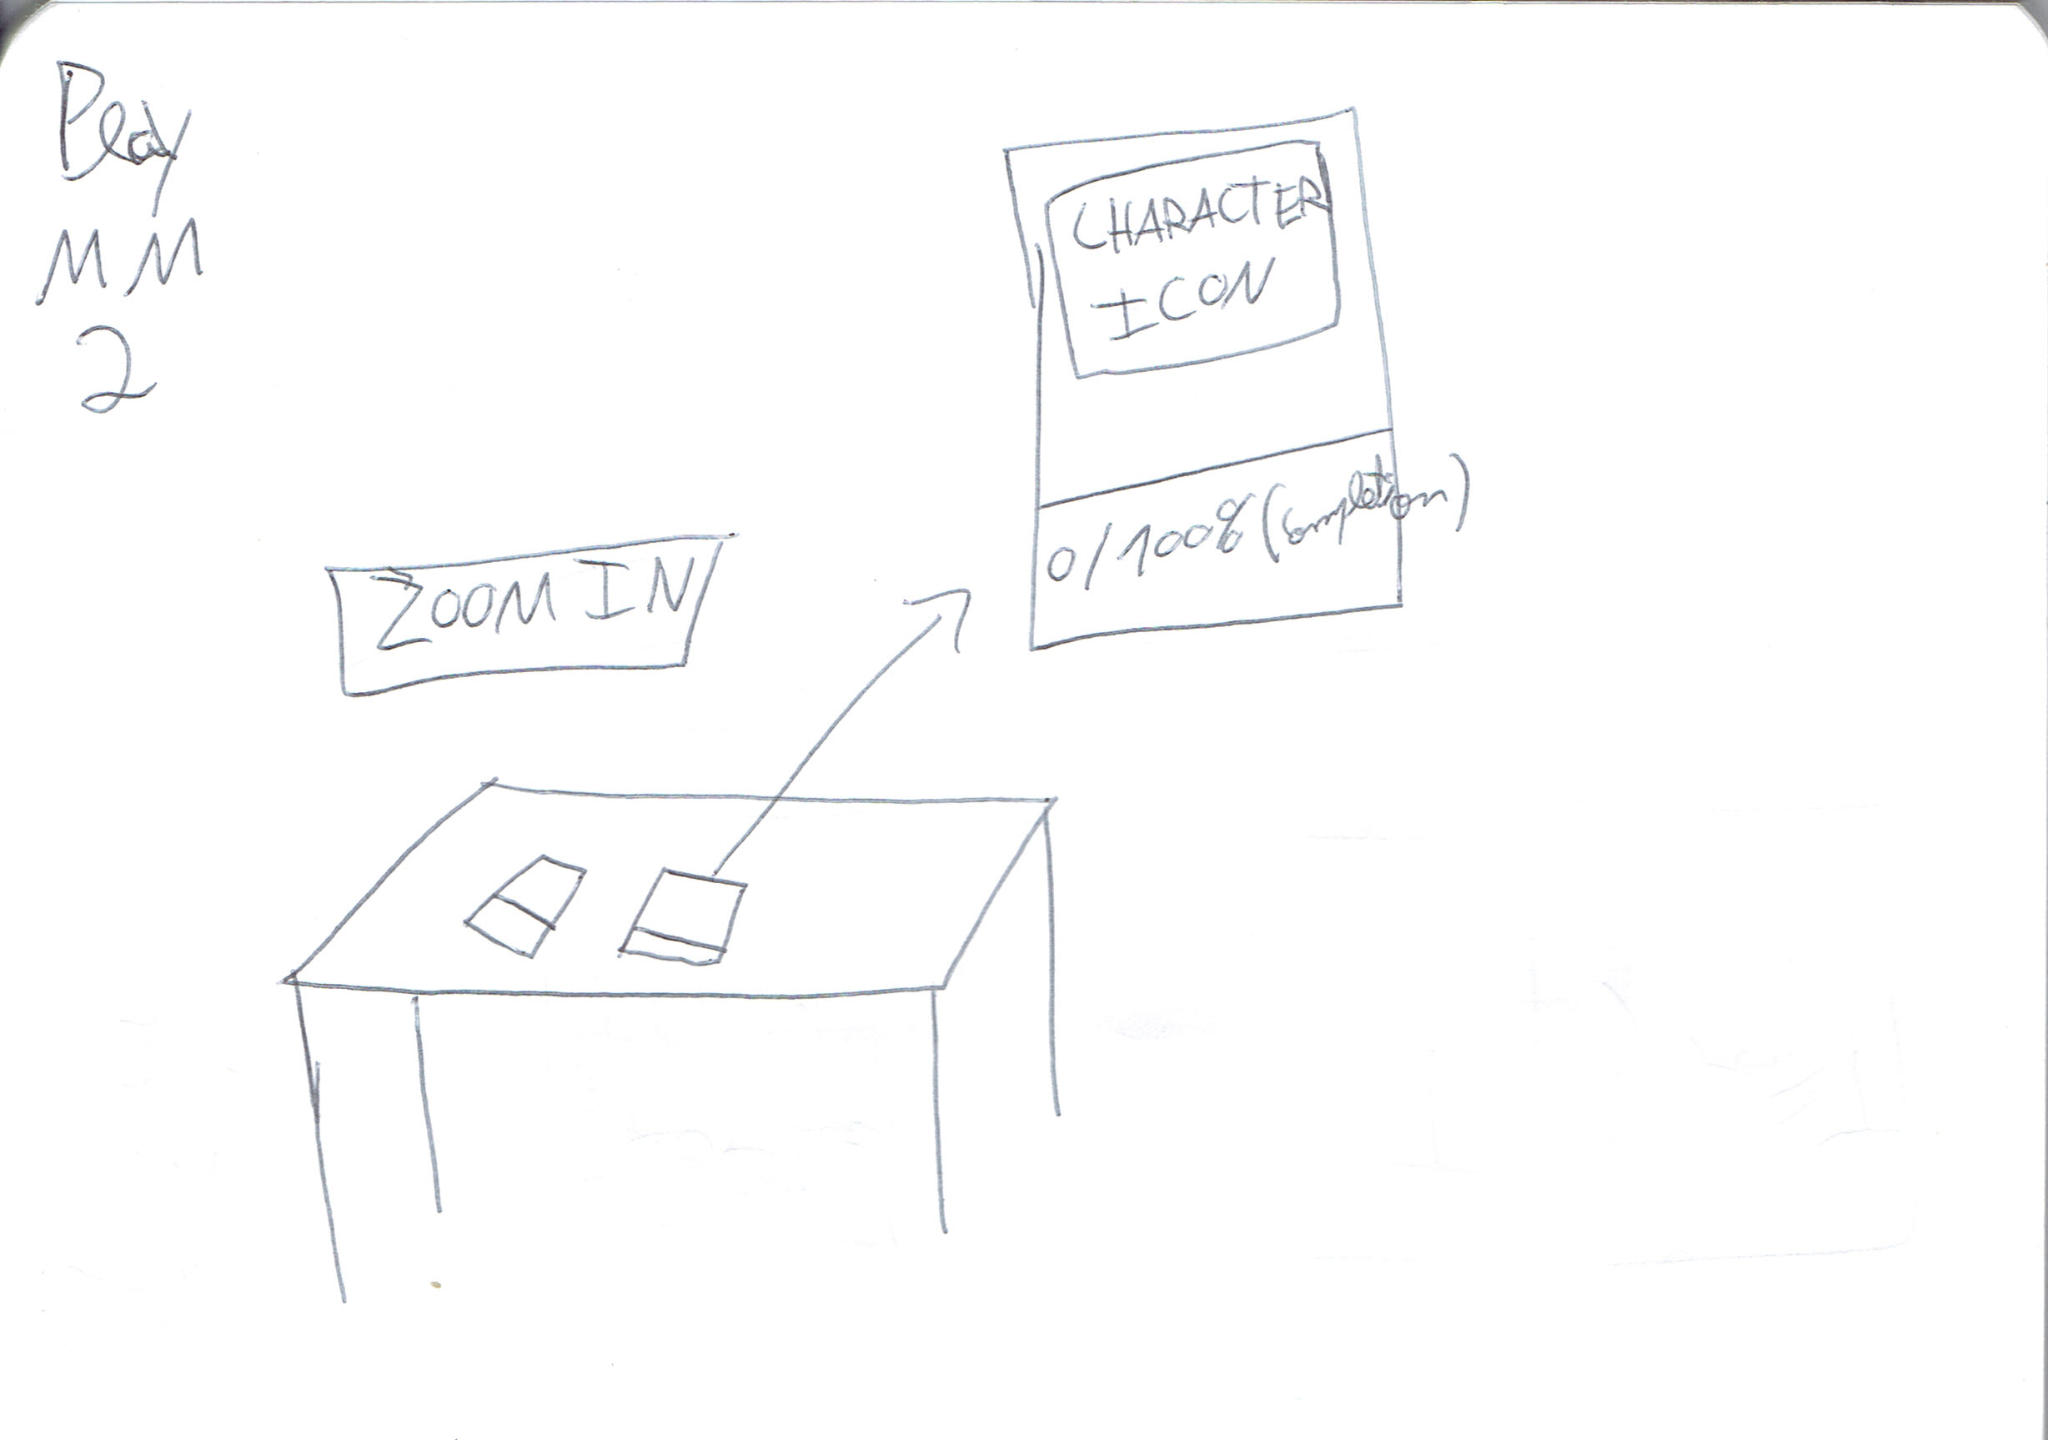 Play
MM
2
CHARACTER
ICON
0/100% (completion)
ZOOM IN